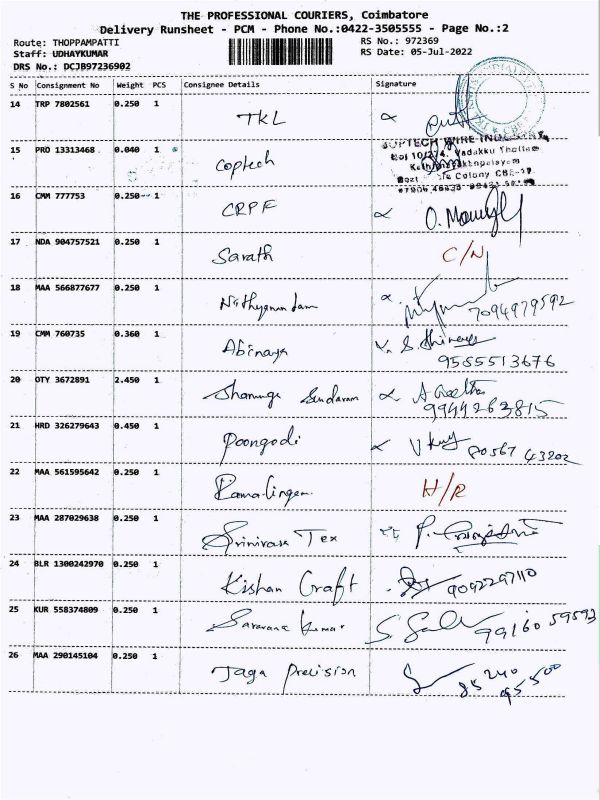 THE PROFESSIONAL COURIERS, Coimbatore
Delivery Runsheet - PCM - Phone No.:0422-3505555 - Page No.:2
Route: THOPPAMPATTI RS No.: 972369
Staff: UDHAYKUMAR RS Date: 05-Jul-2022
DRS No.: DCJB97236902
S No Consignment No Weight PCS Consignee Details Signature
14 TRP 7802561 0.250 1 TKL
15 PRO 13313468 0.040 1 Coptech
16 CMM 777753 0.250 1 CRPF
17 NDA 904757521 0.250 1 Sarath C/N
18 MAA 566877677 0.250 1 Nithyanandam 7094979592
19 CMM 760735 0.360 1 Abinaya 9585513676
20 OTY 3672891 2.450 1 Shanmuga Sundaram A Geetha 9944263815
21 HRD 326279643 0.450 1 Poongodi 80567 43202
22 MAA 561595642 0.250 1 Ramalingam H/R
23 MAA 287029638 0.250 1 Srinivasa Tex
24 BLR 1300242970 0.250 1 Kishan Craft 9092297110
25 KUR 558374809 0.250 1 Saravana Kumar 99160 59593
26 MAA 290145104 0.250 1 Jaga Precision